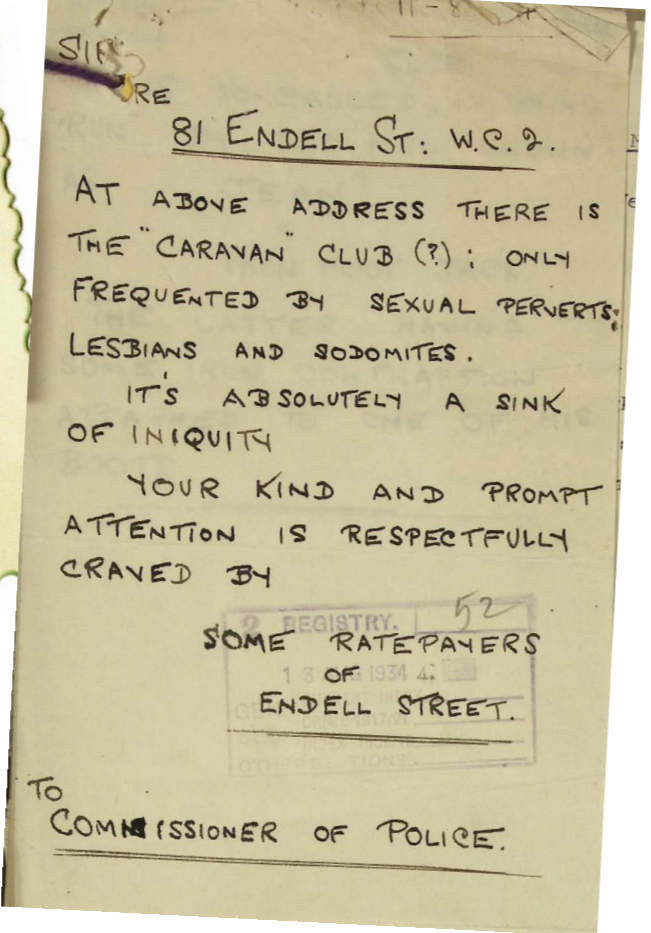 11-8
SIR
RE
81 ENDELL ST: W.C.2.
AT ABOVE ADDRESS THERE IS
THE "CARAVAN" CLUB (?); ONLY
FREQUENTED BY SEXUAL PERVERTS:
LESBIANS AND SODOMITES.
IT'S ABSOLUTELY A SINK
OF INIQUITY
YOUR KIND AND PROMPT
ATTENTION IS RESPECTFULLY
CRAVED BY
REGISTRY. 52
SOME RATEPAYERS
13 AUG 1934
OF
ENDELL STREET.
TO
COMMISSIONER OF POLICE.